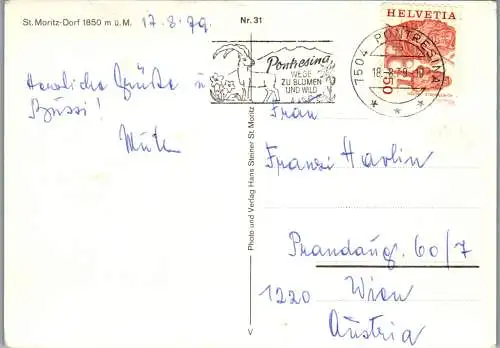 St. Moritz-Dorf 1850 m ü. M.
17.8.79.
Nr. 31
HELVETIA
Pontresina
WEGE
ZU BLUMEN
UND WILD
7504 PONTRESINA
18.-8.79.-10
50
Herzliche Grüße u
Bussi!
Mutti
Photo und Verlag Hans Steiner St. Moritz
V
Frau
Franzi Havlin
Prandaug. 60/7
1220 Wien
Austria